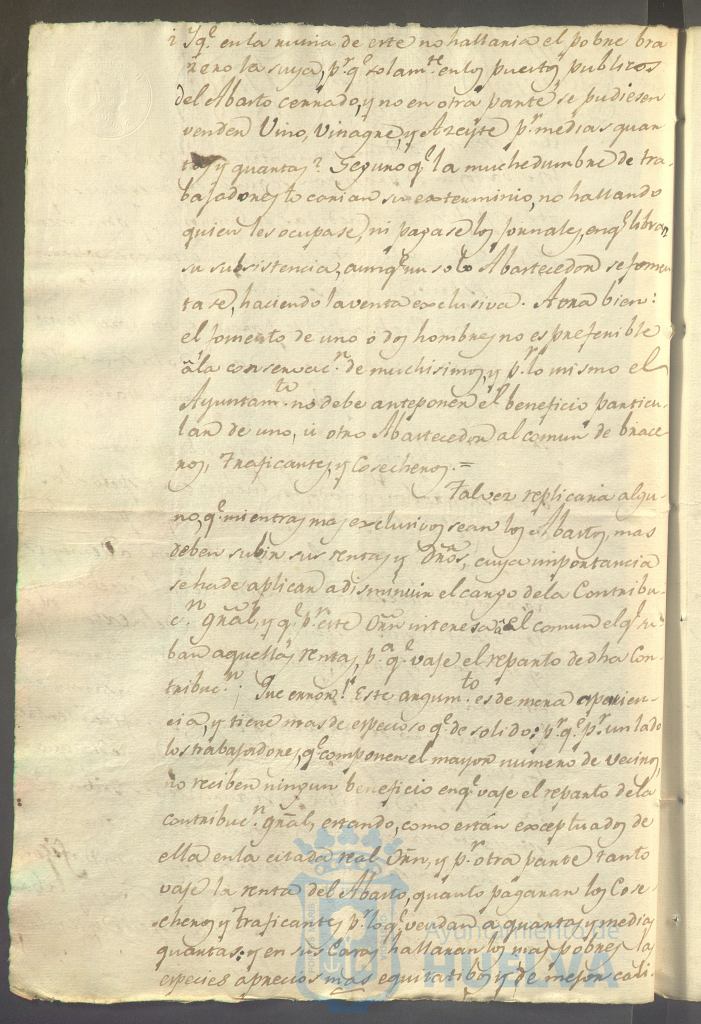 ¿Y q.e en la ruina de este no hallaria el pobre bra
zero la suya, p.r q.e solam.te en los puestos publicos
del Abasto cerrado, y no en otra parte se pudiesen
vender Vino, Vinagre, y Azeyte p.r medias quar
tas, y quartas? Seguro q.e la muchedumbre de tra-
bajadores to carian su exterminio, no hallando
quien les ocupase, ni pagase los jornales, en q.e libran
su subsistencia, aunq.e un solo Abastecedor se fomen
tase, haciendo la venta exclusiva. Aora bien:
el fomento de uno ó dos hombres no es preferible
â la conservac.n de muchisimos, y p.r lo mismo el
Ayuntam.to no debe anteponer el beneficio particu-
lar de uno, ú otro Abastecedor al comun de brace
ros, Traficantes, y Cosecheros.=
Talvez replicaria algu-
no, q.e mientras mas exclusivos sean los Abastos, mas
deben subir sus rentas, y dr̃os, cuya importancia
se ha de aplicar a disminuir el cargo de la Contribu-
c.n gr̃al, y q.e p.r este Orñ interesa âl comun el q.e su
ban aquellas rentas, p.a q.e vaje el reparto de dha Con-
tribuc.n ¡Que error! Este argum.to es de mera aparien-
cia, y tiene mas de especioso q.e de solido: p.r q.e p.r un lado
los trabajadores, q.e componen el mayor numero de vecinos,
no reciben ningun beneficio en q.e vaje el reparto de la
contribuc.n gr̃al, estando, como están exceptuados de
ella en la citada real Orñ, y p.r otra parte tanto
vaje la renta del Abasto, quanto pagaran los Cose-
cheros y traficantes p.r lo q.e vendan a quartas y medias
quartas: y en sus Casas hallaran los mas pobres las
especies a precios mas equitatibos y de mejor cali-
Ayuntamiento de
HUELVA